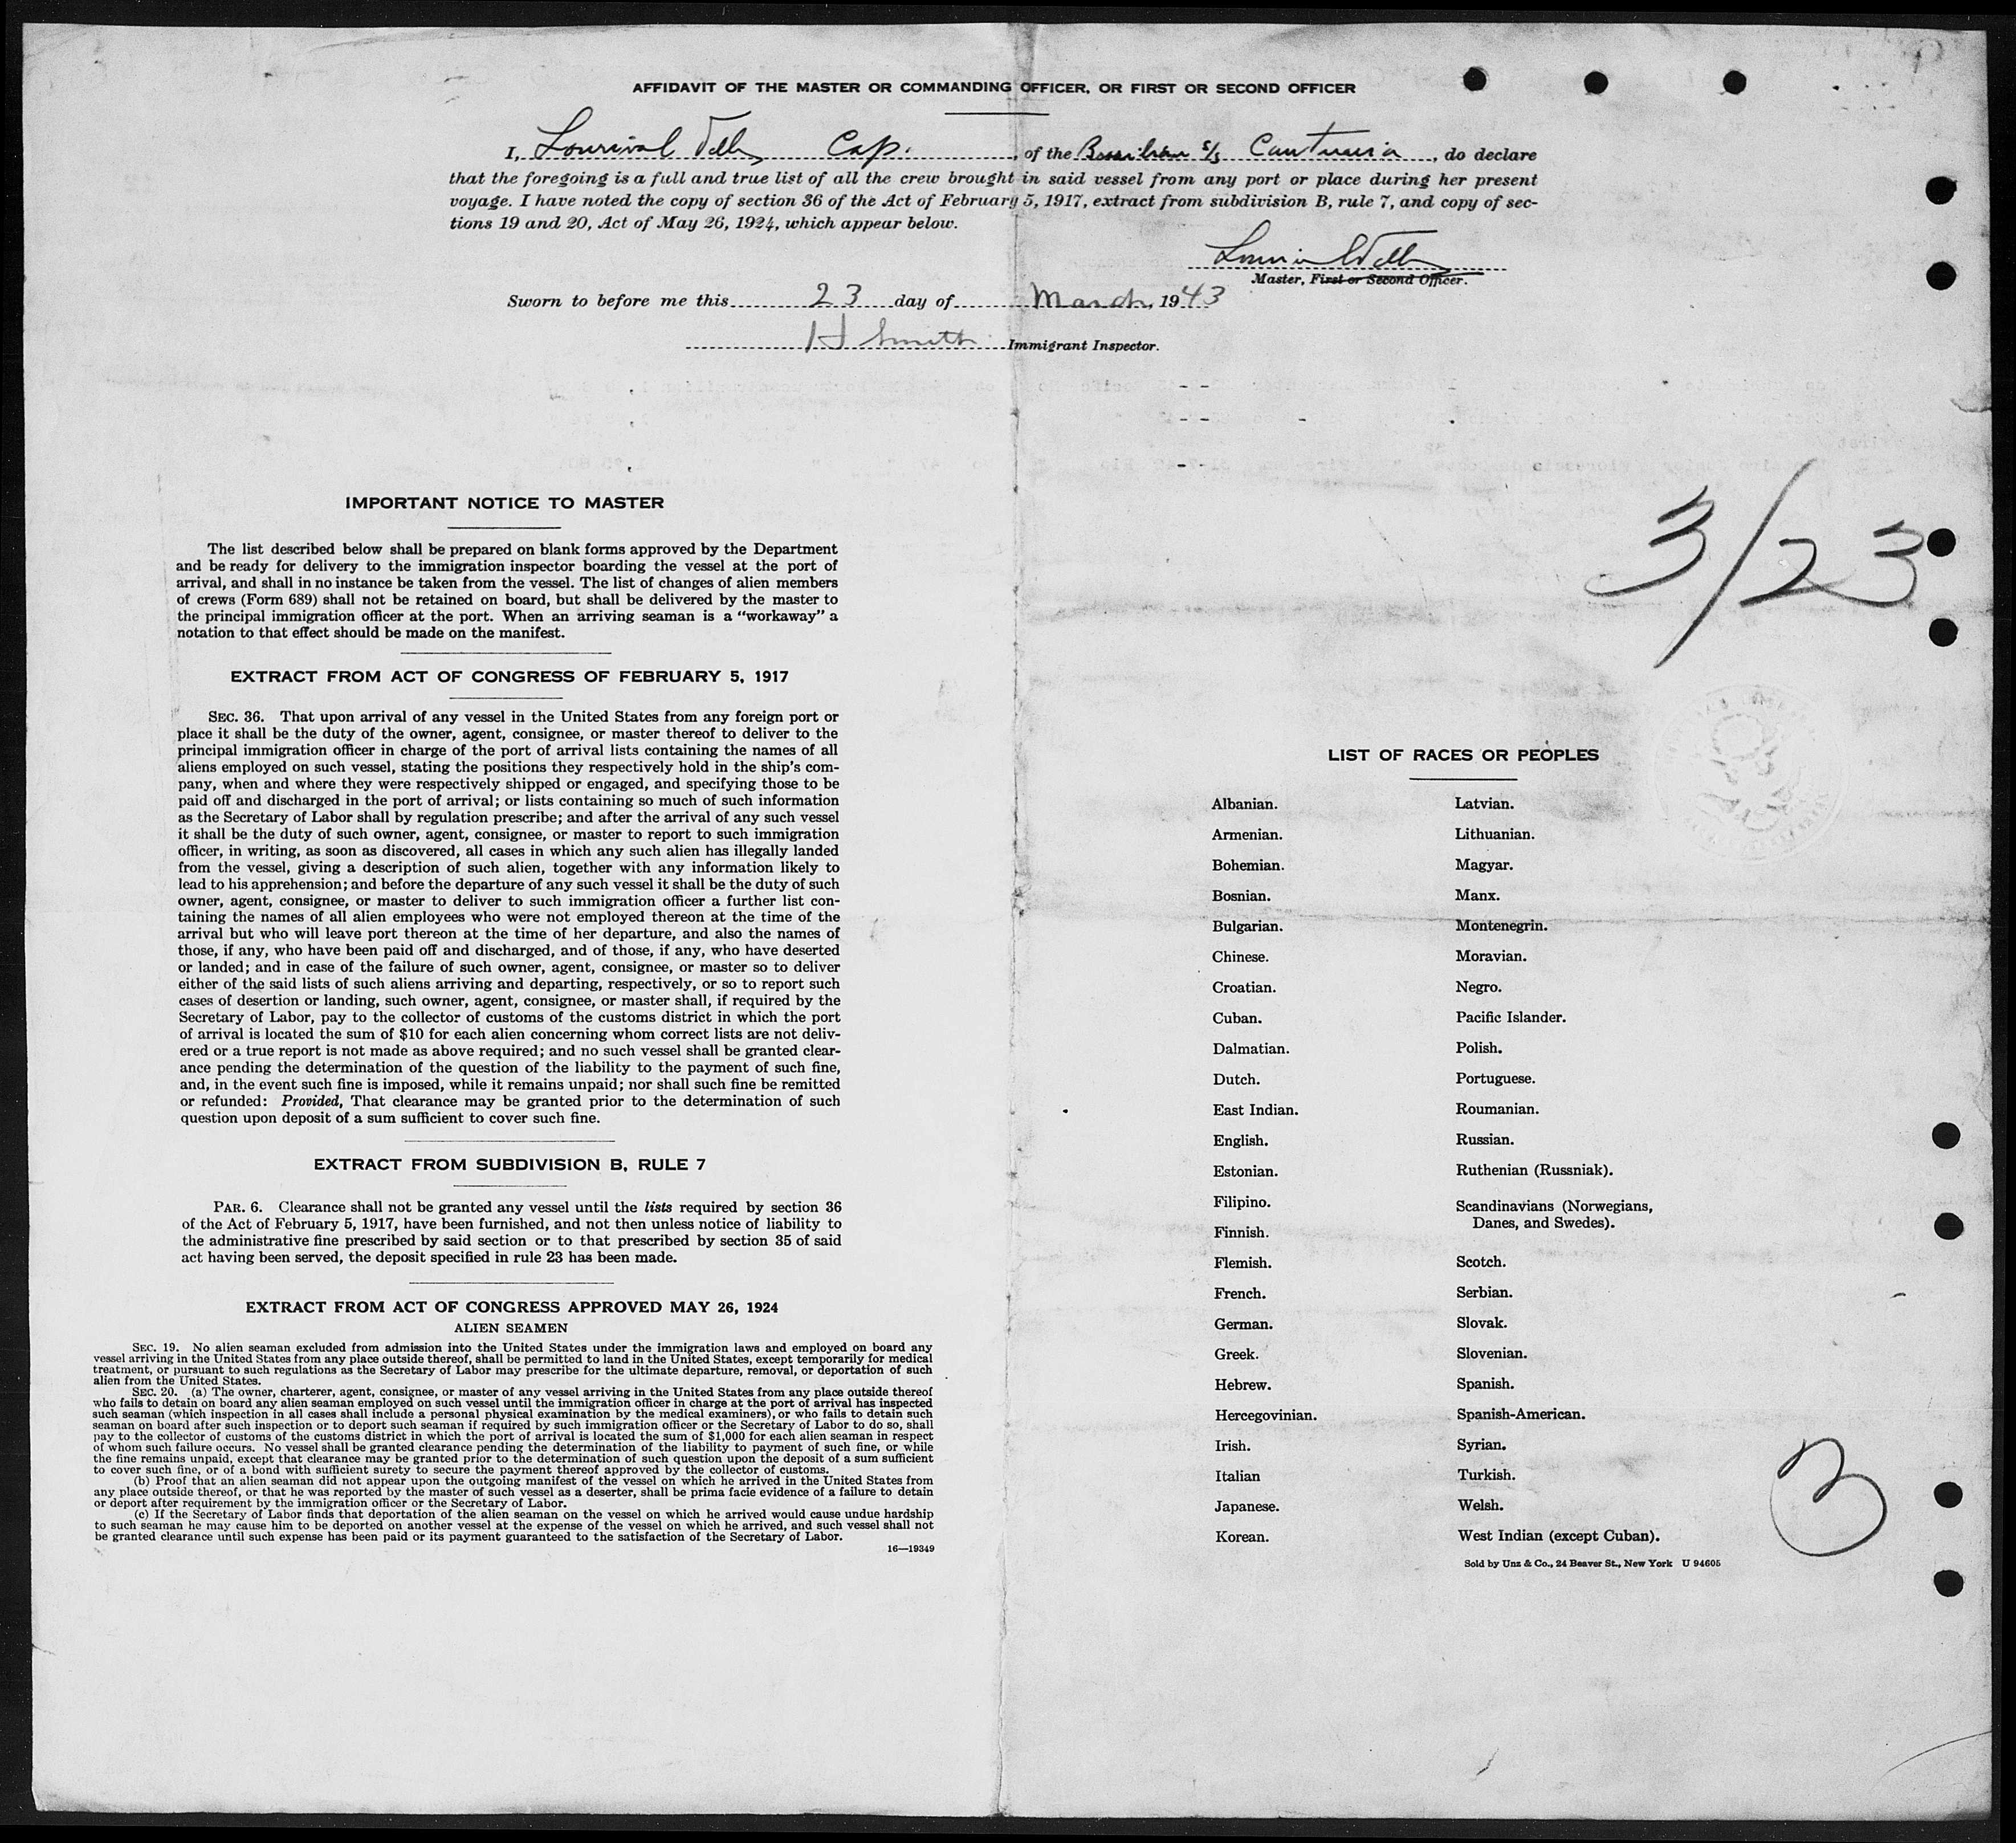 AFFIDAVIT OF THE MASTER OR COMMANDING OFFICER, OR FIRST OR SECOND OFFICER
I, Lourival Cap. , of the Brasilian S/S Cantuaria , do declare
that the foregoing is a full and true list of all the crew brought in said vessel from any port or place during her present
voyage. I have noted the copy of section 36 of the Act of February 5, 1917, extract from subdivision B, rule 7, and copy of sec-
tions 19 and 20, Act of May 26, 1924, which appear below.
Master, First or Second Officer.
Sworn to before me this 23 day of March, 1943
H Smith Immigrant Inspector.
3/23
IMPORTANT NOTICE TO MASTER
The list described below shall be prepared on blank forms approved by the Department
and be ready for delivery to the immigration inspector boarding the vessel at the port of
arrival, and shall in no instance be taken from the vessel. The list of changes of alien members
of crews (Form 689) shall not be retained on board, but shall be delivered by the master to
the principal immigration officer at the port. When an arriving seaman is a "workaway" a
notation to that effect should be made on the manifest.
EXTRACT FROM ACT OF CONGRESS OF FEBRUARY 5, 1917
SEC. 36. That upon arrival of any vessel in the United States from any foreign port or
place it shall be the duty of the owner, agent, consignee, or master thereof to deliver to the
principal immigration officer in charge of the port of arrival lists containing the names of all
aliens employed on such vessel, stating the positions they respectively hold in the ship's com-
pany, when and where they were respectively shipped or engaged, and specifying those to be
paid off and discharged in the port of arrival; or lists containing so much of such information
as the Secretary of Labor shall by regulation prescribe; and after the arrival of any such vessel
it shall be the duty of such owner, agent, consignee, or master to report to such immigration
officer, in writing, as soon as discovered, all cases in which any such alien has illegally landed
from the vessel, giving a description of such alien, together with any information likely to
lead to his apprehension; and before the departure of any such vessel it shall be the duty of such
owner, agent, consignee, or master to deliver to such immigration officer a further list con-
taining the names of all alien employees who were not employed thereon at the time of the
arrival but who will leave port thereon at the time of her departure, and also the names of
those, if any, who have been paid off and discharged, and of those, if any, who have deserted
or landed; and in case of the failure of such owner, agent, consignee, or master so to deliver
either of the said lists of such aliens arriving and departing, respectively, or so to report such
cases of desertion or landing, such owner, agent, consignee, or master shall, if required by the
Secretary of Labor, pay to the collector of customs of the customs district in which the port
of arrival is located the sum of $10 for each alien concerning whom correct lists are not deliv-
ered or a true report is not made as above required; and no such vessel shall be granted clear-
ance pending the determination of the question of the liability to the payment of such fine,
and, in the event such fine is imposed, while it remains unpaid; nor shall such fine be remitted
or refunded: Provided, That clearance may be granted prior to the determination of such
question upon deposit of a sum sufficient to cover such fine.
EXTRACT FROM SUBDIVISION B, RULE 7
PAR. 6. Clearance shall not be granted any vessel until the lists required by section 36
of the Act of February 5, 1917, have been furnished, and not then unless notice of liability to
the administrative fine prescribed by said section or to that prescribed by section 35 of said
act having been served, the deposit specified in rule 23 has been made.
EXTRACT FROM ACT OF CONGRESS APPROVED MAY 26, 1924
ALIEN SEAMEN
SEC. 19. No alien seaman excluded from admission into the United States under the immigration laws and employed on board any
vessel arriving in the United States from any place outside thereof, shall be permitted to land in the United States, except temporarily for medical
treatment, or pursuant to such regulations as the Secretary of Labor may prescribe for the ultimate departure, removal, or deportation of such
alien from the United States.
SEC. 20. (a) The owner, charterer, agent, consignee, or master of any vessel arriving in the United States from any place outside thereof
who fails to detain on board any alien seaman employed on such vessel until the immigration officer in charge at the port of arrival has inspected
such seaman (which inspection in all cases shall include a personal physical examination by the medical examiners), or who fails to detain such
seaman on board after such inspection or to deport such seaman if required by such immigration officer or the Secretary of Labor to do so, shall
pay to the collector of customs of the customs district in which the port of arrival is located the sum of $1,000 for each alien seaman in respect
of whom such failure occurs. No vessel shall be granted clearance pending the determination of the liability to payment of such fine, or while
the fine remains unpaid, except that clearance may be granted prior to the determination of such question upon the deposit of a sum sufficient
to cover such fine, or of a bond with sufficient surety to secure the payment thereof approved by the collector of customs.
(b) Proof that an alien seaman did not appear upon the outgoing manifest of the vessel on which he arrived in the United States from
any place outside thereof, or that he was reported by the master of such vessel as a deserter, shall be prima facie evidence of a failure to detain
or deport after requirement by the immigration officer or the Secretary of Labor.
(c) If the Secretary of Labor finds that deportation of the alien seaman on the vessel on which he arrived would cause undue hardship
to such seaman he may cause him to be deported on another vessel at the expense of the vessel on which he arrived, and such vessel shall not
be granted clearance until such expense has been paid or its payment guaranteed to the satisfaction of the Secretary of Labor.
16—19349
LIST OF RACES OR PEOPLES
Albanian.
Armenian.
Bohemian.
Bosnian.
Bulgarian.
Chinese.
Croatian.
Cuban.
Dalmatian.
Dutch.
East Indian.
English.
Estonian.
Filipino.
Finnish.
Flemish.
French.
German.
Greek.
Hebrew.
Hercegovinian.
Irish.
Italian
Japanese.
Korean.
Latvian.
Lithuanian.
Magyar.
Manx.
Montenegrin.
Moravian.
Negro.
Pacific Islander.
Polish.
Portuguese.
Roumanian.
Russian.
Ruthenian (Russniak).
Scandinavians (Norwegians,
Danes, and Swedes).
Scotch.
Serbian.
Slovak.
Slovenian.
Spanish.
Spanish-American.
Syrian.
Turkish.
Welsh.
West Indian (except Cuban).
3
Sold by Unz & Co., 24 Beaver St., New York U 94605